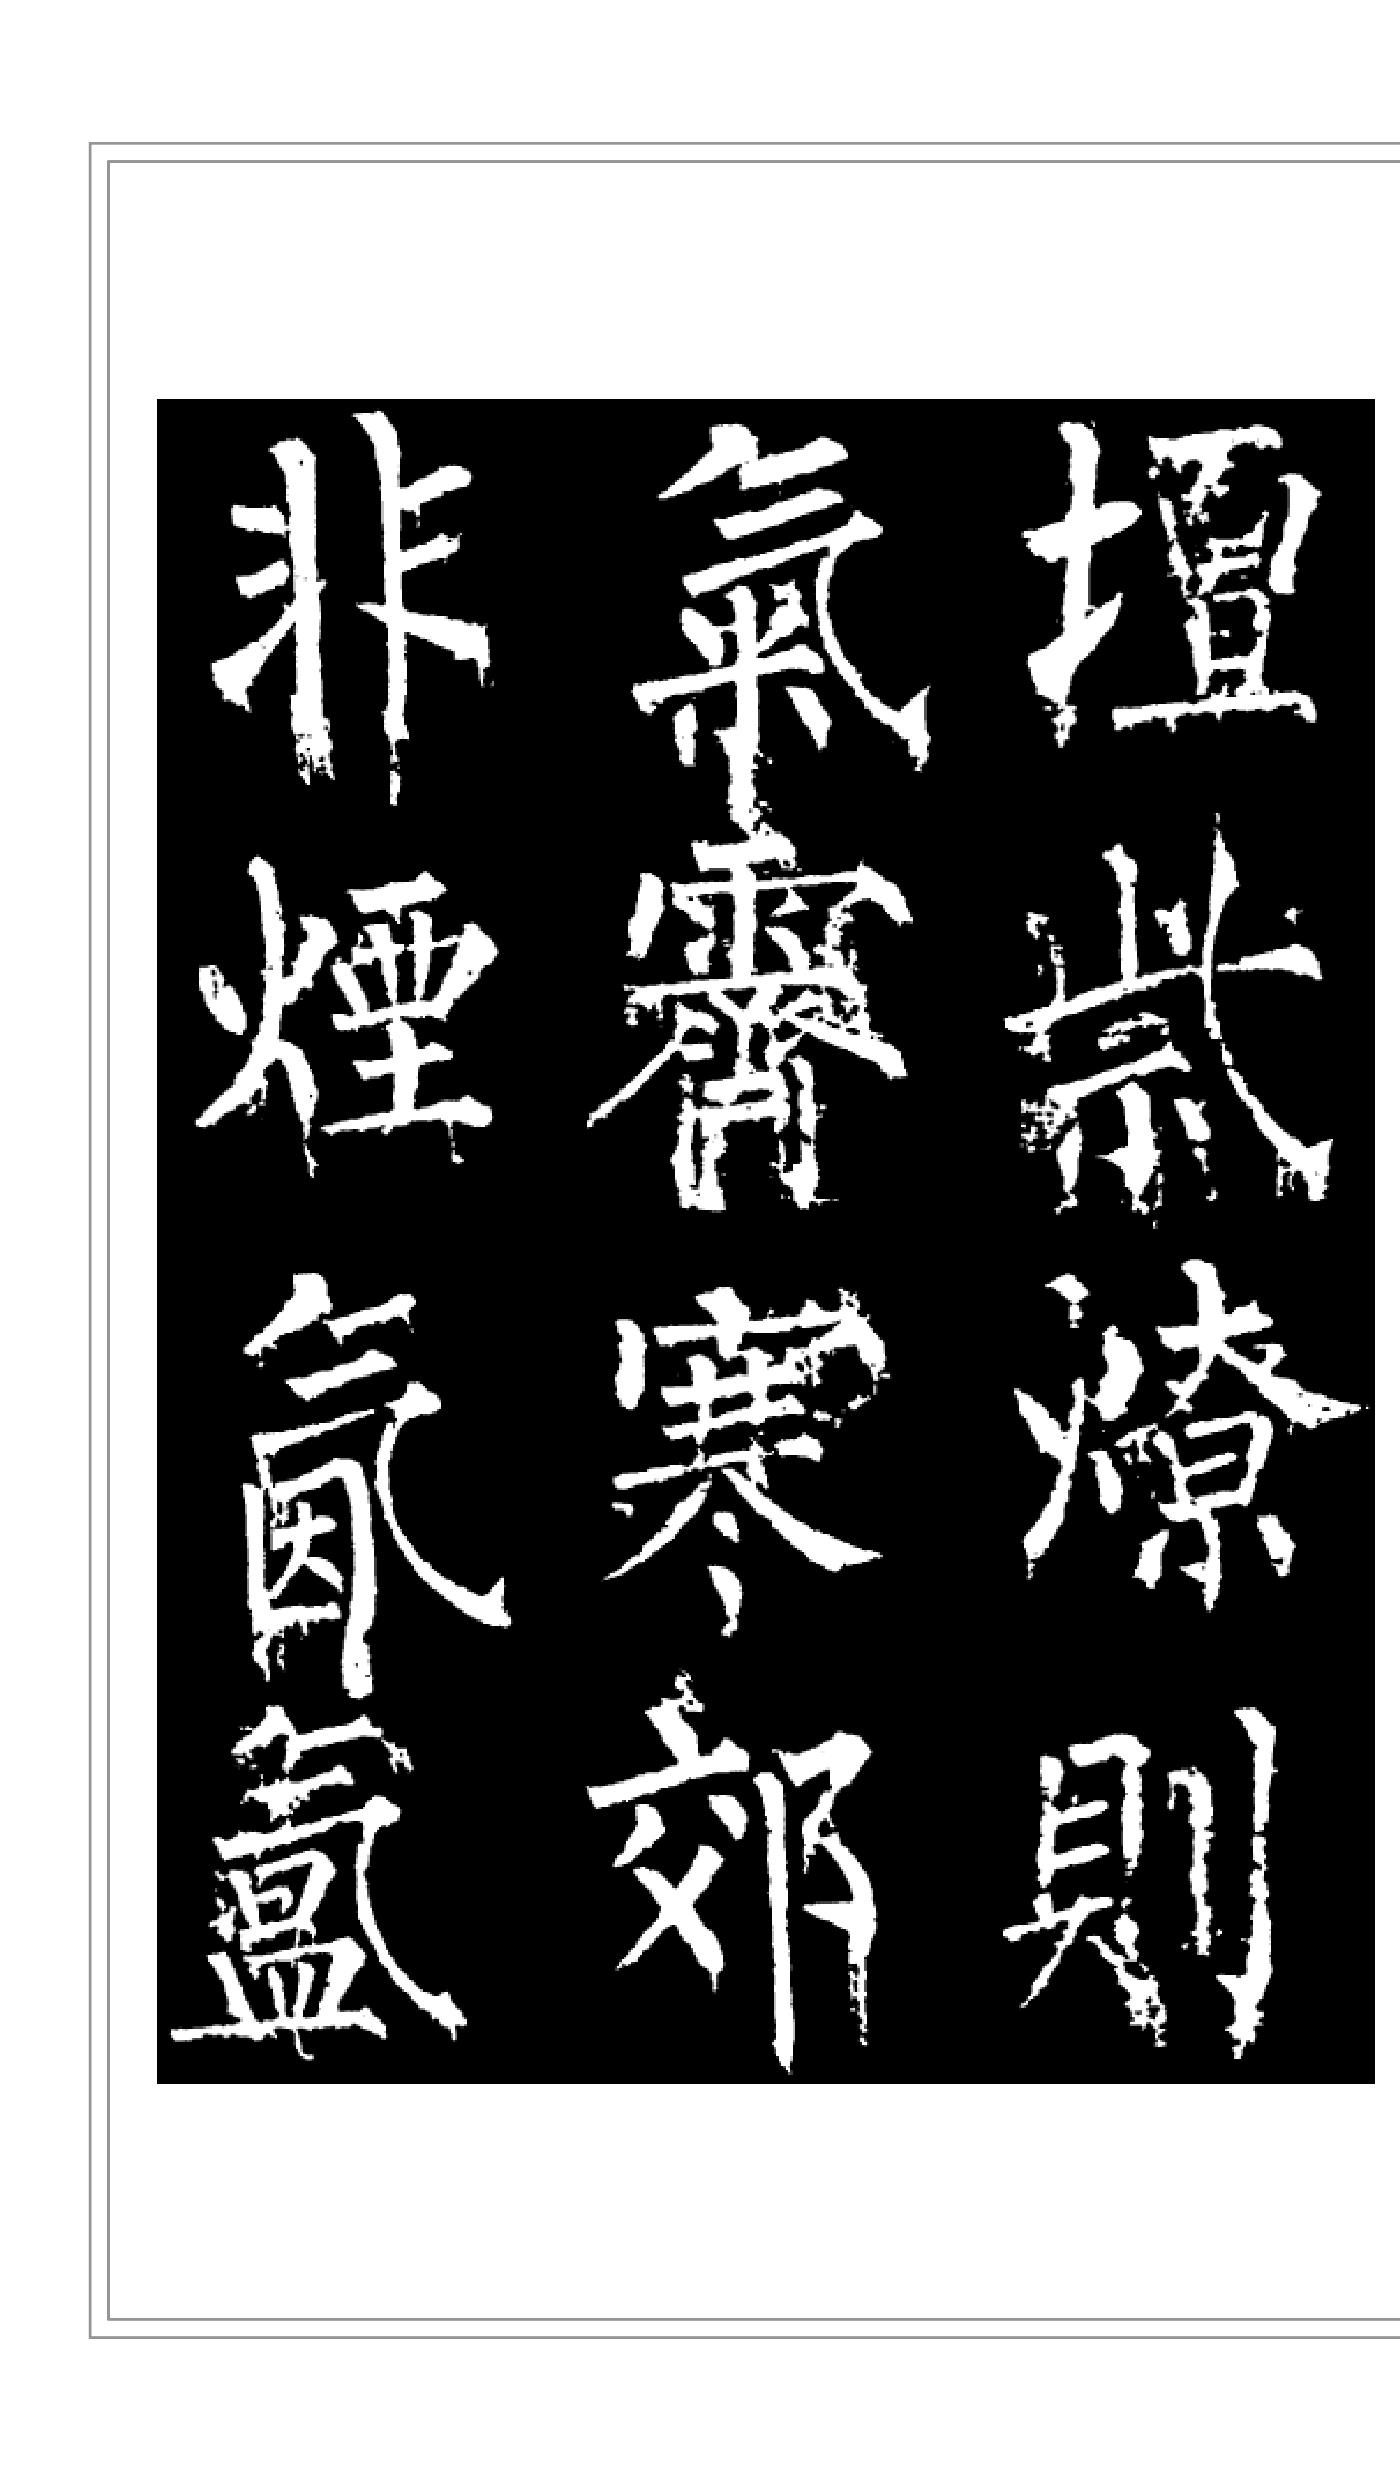 壇祡燎則
氣霽寒郊
非煙氤氳